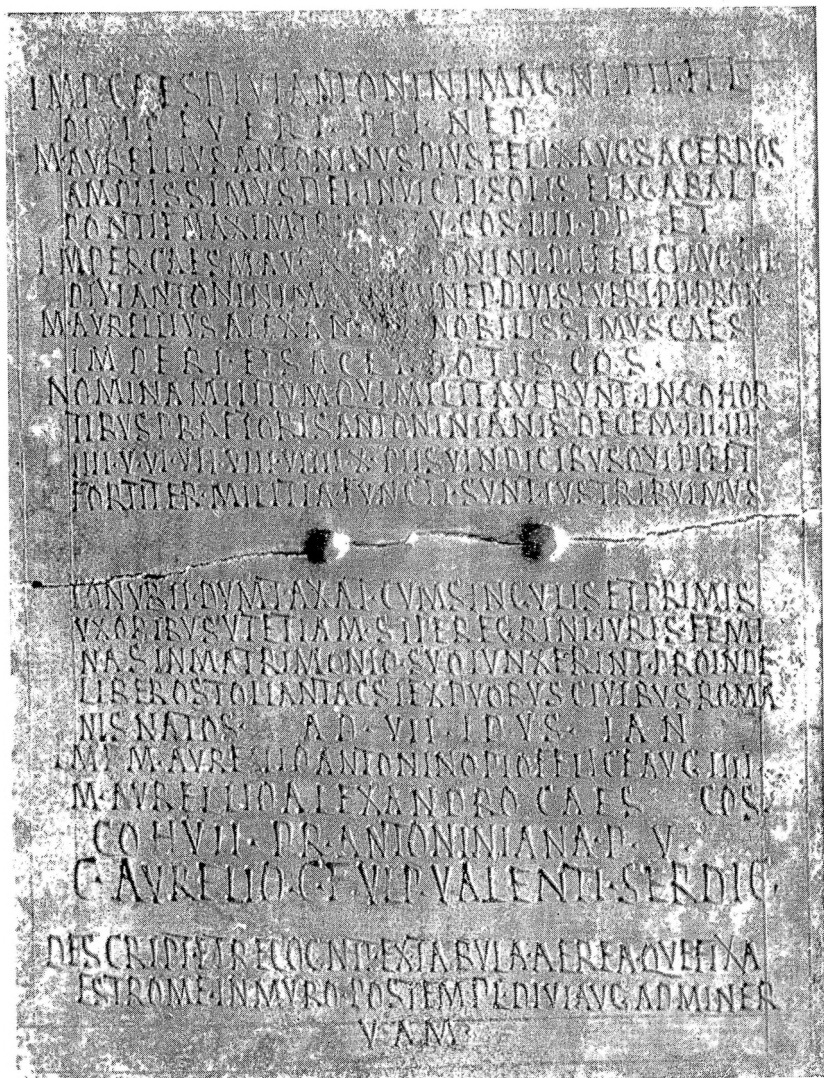 IMP·CAES DIVI ANTONINI MAGNI PII·FIL
DIVI SEVERI·PII NEP
M·AVRELLIVS ANTONINVS PIVS FELIX AVG SACERDOS
AMPLISSIMVS DEI·INVICTI SOLIS ELAGABALI·
PONTIF MAXIM V·COS·IIII·PP ET
IMPER CAES M AV ONINI·PII FELICI AVG FIL
DIVI ANTONINI MA NEP DIVI SEVERI PII PRON·
M·AVRELLIVS ALEXAN NOBILISSIMVS CAES
IMPERI·ET SACERDOTIS COS
NOMINA MILITVM QVI MILITAVERVNT·IN COHOR
TIBVS PRAETORIS ANTONINIANIS DECEM·I·II·III·
IIII·V·VI·VII·VIII·VIIII·X·PIIS VINDICIBVS QVI PIE ET
FORTITER·MILITIA FVNCTI·SVNT IVS TRIBVIMVS
CONVBII·DVMTAXAT·CVM SINGVLIS ET PRIMIS
VXORIBVS VT ETIAM·SI PEREGRINI·IVRIS·FEMI
NAS IN MATRIMONIO·SVO IVNXERINT·PROINDE
LIBEROS TOLLANT AC SI EX DVOBVS CIVIBVS ROMA
NIS NATOS· A·D·VII·IDVS· IAN
IMP M·AVRELLIO ANTONINO PIO FELICE AVG IIII·
M·AVRELLIO ALEXANDRO CAES COS·
COH VII· PR·ANTONINIANA·P·V·
C·AVRELIO·C·F·VLP VALENTI·SERDIC·
DESCRIPT·ET RECOGNIT·EX TABVLA·AEREA QVE FIXA
EST ROME·IN MVRO·POS TEMPL·DIVI AVG AD MINER
VAM